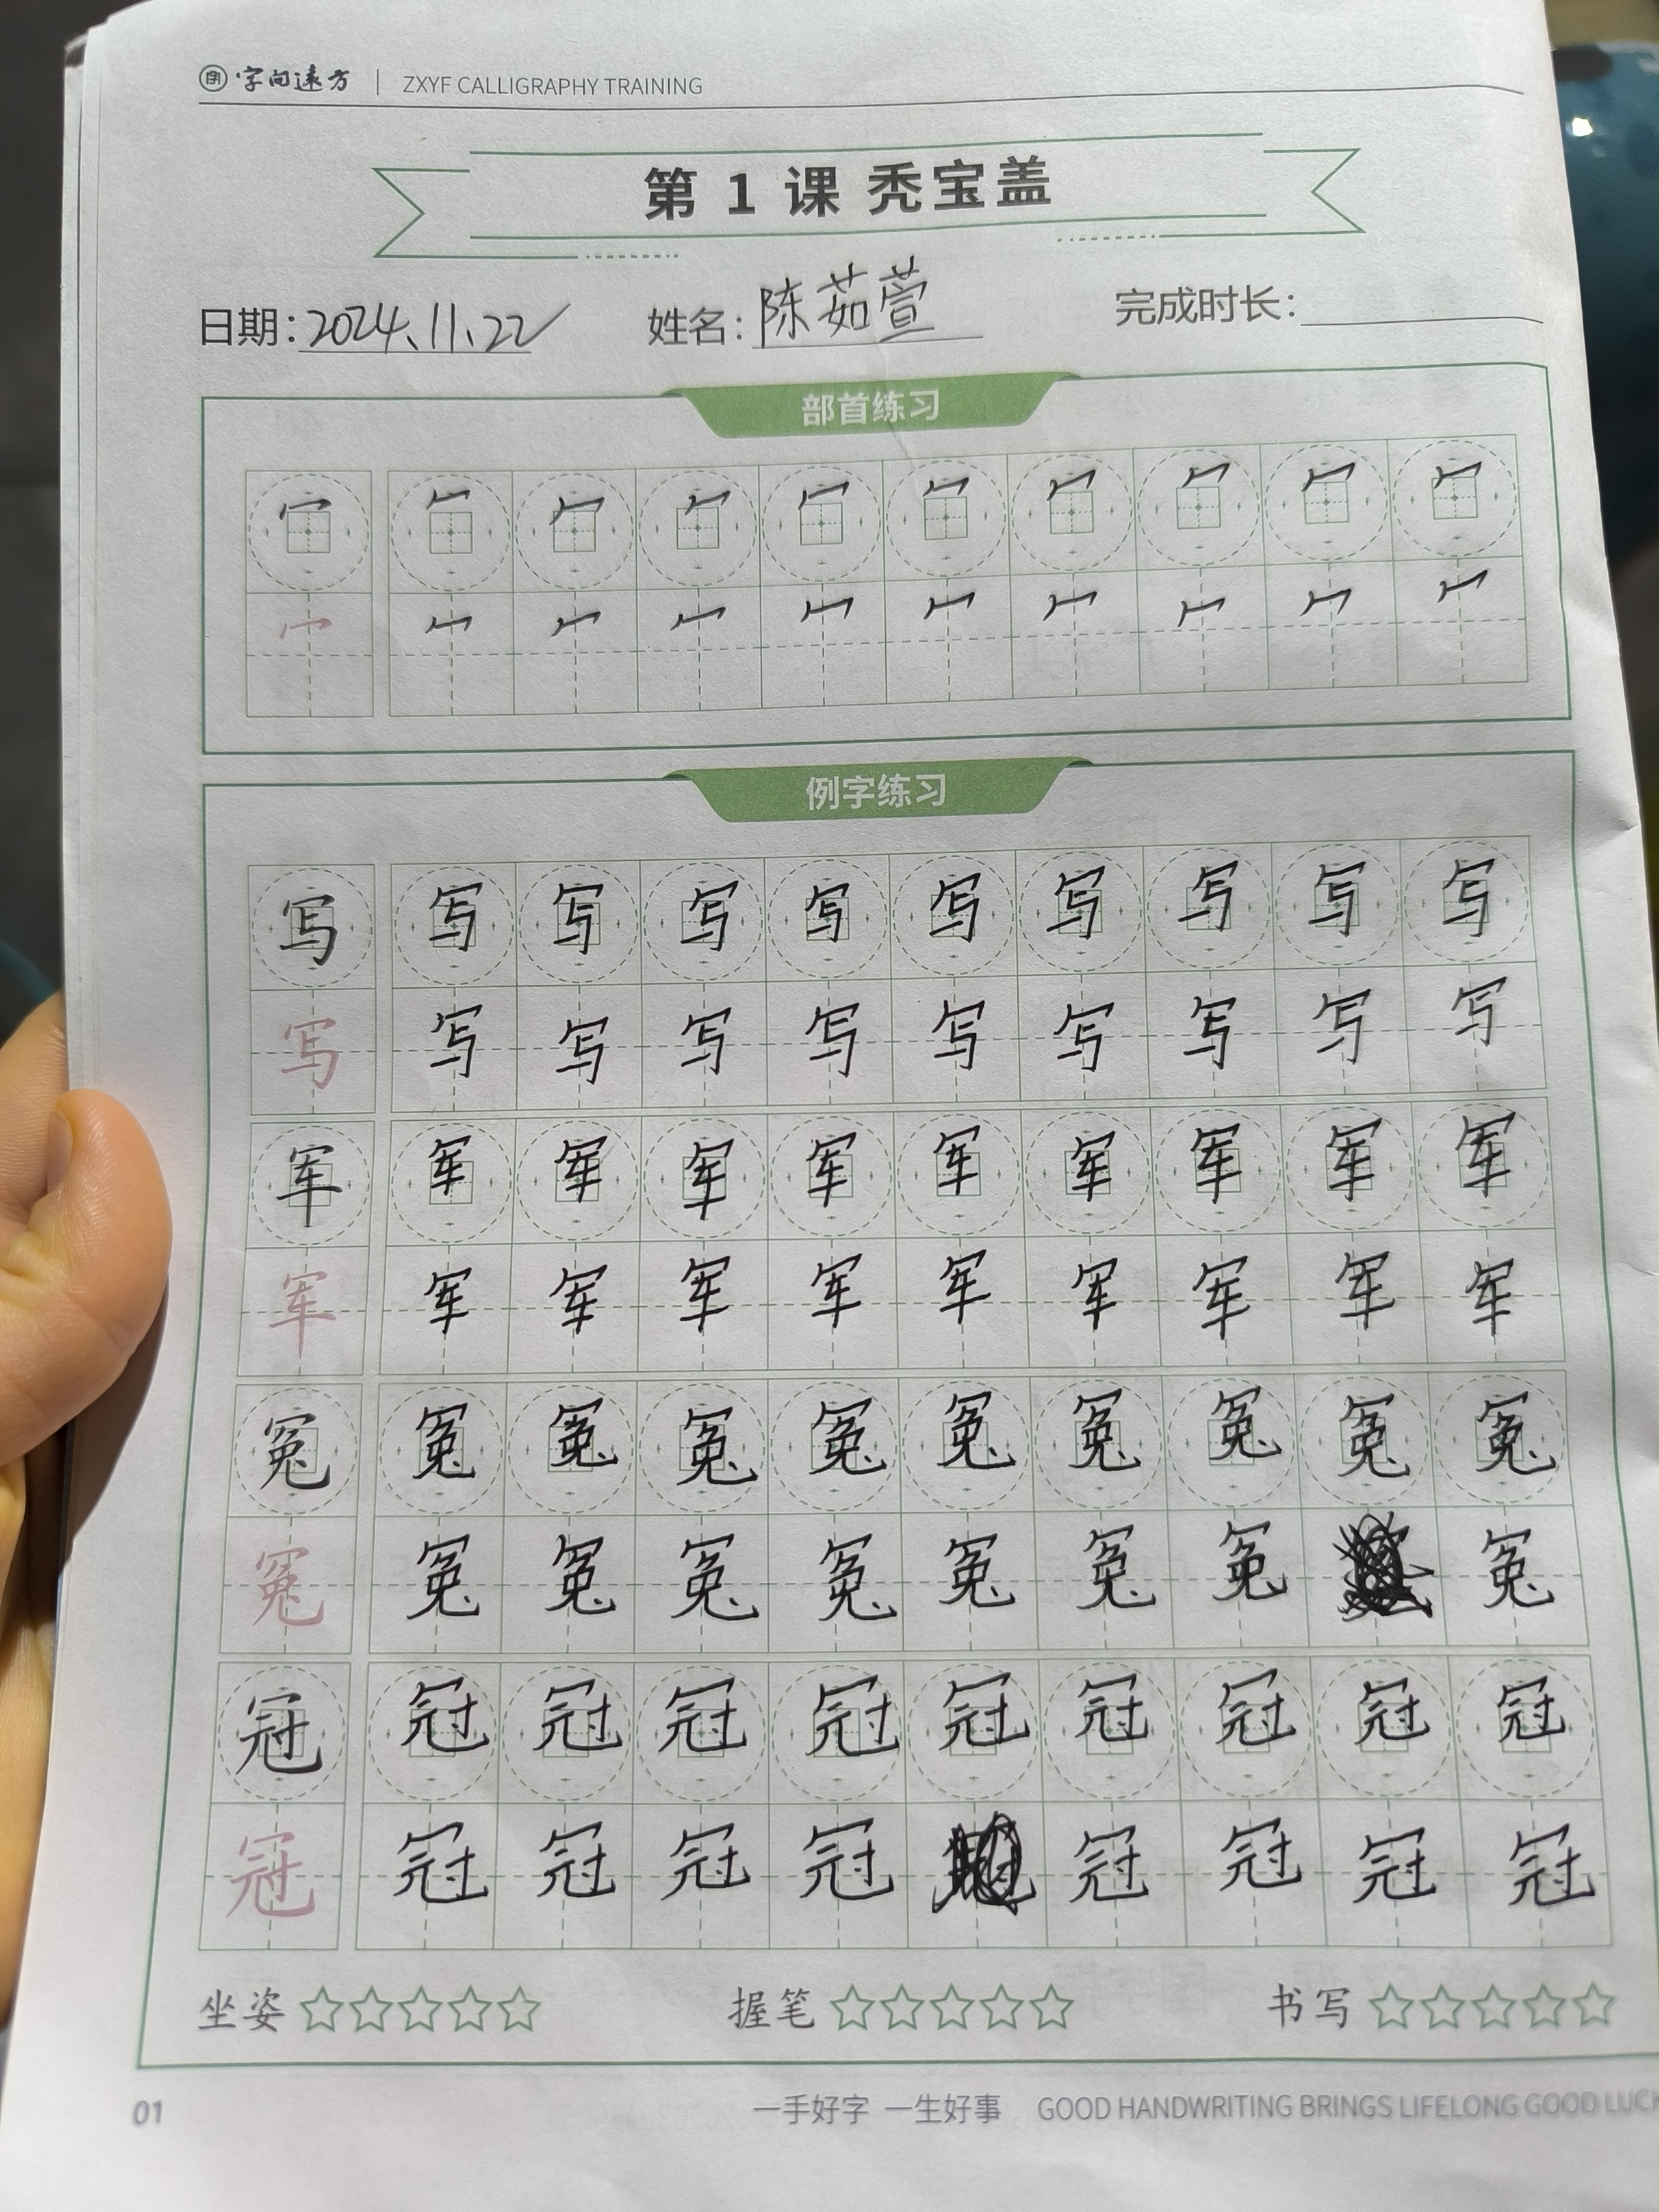 字向远方 | ZXYF CALLIGRAPHY TRAINING
第 1 课 秃宝盖
日期: 2024.11.22 姓名: 陈茹萱 完成时长:
部首练习
冖 冖 冖 冖 冖 冖 冖 冖 冖 冖
冖 冖 冖 冖 冖 冖 冖 冖 冖 冖
例字练习
写 写 写 写 写 写 写 写 写 写
写 写 写 写 写 写 写 写 写 写
军 军 军 军 军 军 军 军 军 军
军 军 军 军 军 军 军 军 军 军
冤 冤 冤 冤 冤 冤 冤 冤 冤 冤
冤 冤 冤 冤 冤 冤 冤 冤 冤
冠 冠 冠 冠 冠 冠 冠 冠 冠 冠
冠 冠 冠 冠 冠 冠 冠 冠 冠
坐姿 ☆☆☆☆☆ 握笔 ☆☆☆☆☆ 书写 ☆☆☆☆☆
01 一手好字 一生好事 GOOD HANDWRITING BRINGS LIFELONG GOOD LUCK